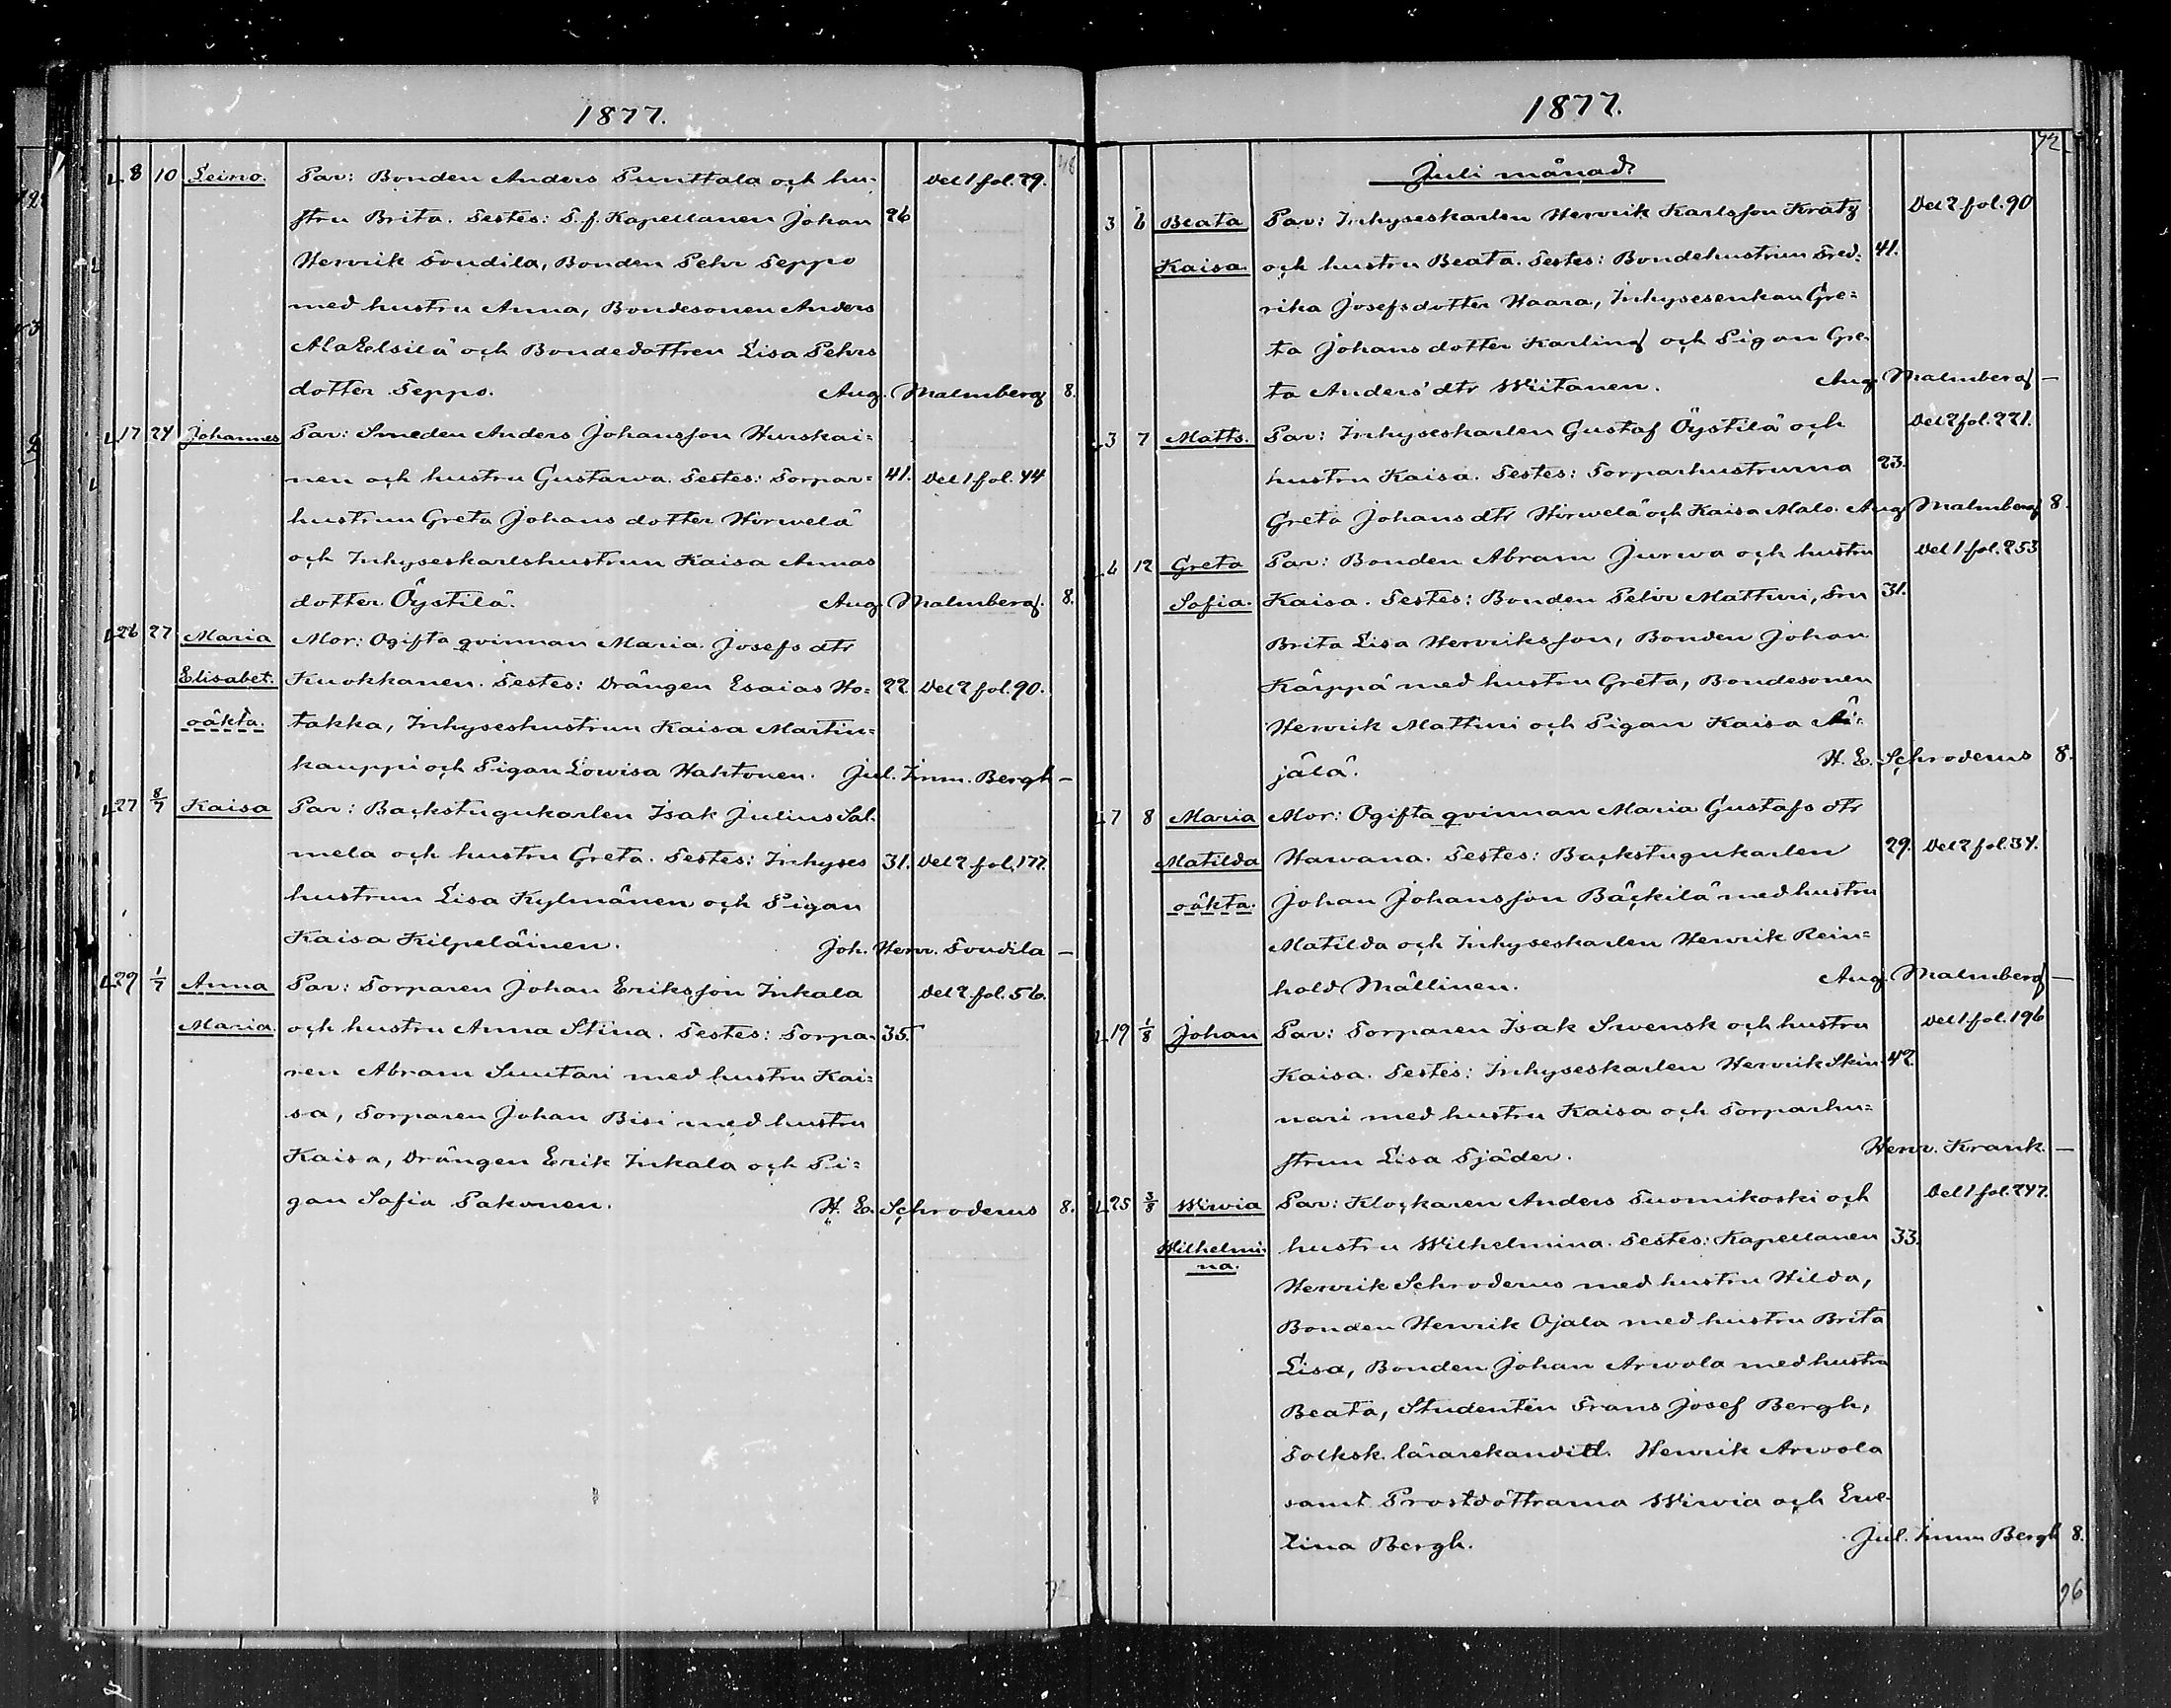 1877.
8 10 Seino. Par: Bonden Anders Punttala och hu- Del 1 fol. 29.
stru Brita. Testes: T. f. Kapellanen Johan 26
Henrik Toudila, Bonden Pehr Seppo
med hustru Anna, Bondesonen Anders
AlaElsilä och Bondedottren Lisa Pehrs
dotter Seppo. Aug. Malmberg 8.
17 24 Johannes Par: Smeden Anders Johansson Hurskai=
nen och hustru Gustawa. Testes: Torpar= 41. Del 1 fol. 44
hustrun Greta Johans dotter Hirwelä
och Inhyseskarlshustrun Kaisa Annas
dotter Öystilä. Aug. Malmberg. 8.
26 27 Maria Mor: Ogifta qvinnan Maria Josefs dtr
Elisabet. Kuokkanen. Testes: Drängen Esaias Ho= 22. Del 2 fol. 90.
oäkta. takka, Inhyseshustrun Kaisa Martin=
kauppi och Pigan Lowisa Hahtonen. Jul. Imm. Bergh –
27 8/7 Kaisa Par: Backstugukarlen Isak Julius Sal-
mela och hustru Greta. Testes: Inhyses 31. Del 2 fol. 177.
hustrun Lisa Kylmänen och Pigan
Kaisa Kilpeläinen. Joh. Henr. Toudila –
29 1/7 Anna Par: Torparen Johan Eriksson Inkala Del 2 fol. 56.
Maria. och hustru Anna Stina. Testes: Torpa- 35.
ren Abram Suutari med hustru Kai=
sa, Torparen Johan Bisi med hustru
Kaisa, Drängen Erik Inkala och Pi=
gan Sofia Pakonen. H. E. Schroderus 8.
1877.
72
Juli månad.
3 6 Beata Par: Inhyseskarlen Henrik Karlsson Kratz Del 2 fol. 90
Kaisa. och hustru Beata. Testes: Bondehustrun Fred= 41.
rika Josefsdotter Haara, Inhysesenkan Gre=
ta Johans dotter Karling och Pigan Gre-
ta Anders' dtr Wiitanen. Aug. Malmberg –
3 7 Matts. Par: Inhyseskarlen Gustaf Öystilä och Del 2 fol. 221.
hustru Kaisa. Testes: Torparhustrurna 23.
Greta Johansdtr Hirwelä och Kaisa Malo. Aug Malmberg 8.
4 12 Greta Par: Bonden Abram Jurwa och hustru Del 1 fol. 253
Sofia. Kaisa. Testes: Bonden Pehr Matturi, Fru 31.
Brita Lisa Henriksson, Bonden Johan
Käyppä med hustru Greta, Bondesonen
Henrik Matturi och Pigan Kaisa Äi=
jälä. H. E. Schroderus 8.
7 8 Maria Mor: Ogifta qvinnan Maria Gustafs dtr
Matilda Hawana. Testes: Backstugukarlen 29. Del 2 fol. 34.
oäkta. Johan Johansson Bäckilä med hustru
Matilda och Inhyseskarlen Henrik Rein=
hold Mällinen. Aug. Malmberg –
19 1/8 Johan Par: Torparen Isak Swensk och hustru Del 1 fol. 196
Kaisa. Testes: Inhyseskarlen Henrik Skin- 42
nari med hustru Kaisa och Torparhu=
strun Lisa Sjäder. Henr. Krank. –
25 3/8 Wirwia Par: Klockaren Anders Tuomikoski och Del 1 fol. 247.
Wilhelmi- hustru Wilhelmina. Testes: Kapellanen 33.
na. Henrik Schroderus med hustru Hilda,
Bonden Henrik Ojala med hustru Brita
Lisa, Bonden Johan Arwola med hustru
Beata, Studenten Frans Josef Bergh,
Folksk. lärarekandid. Henrik Arwola
samt Prostdöttrarna Wirwia och Ewe-
lina Bergh. Jul. Imm Bergh 8.
96